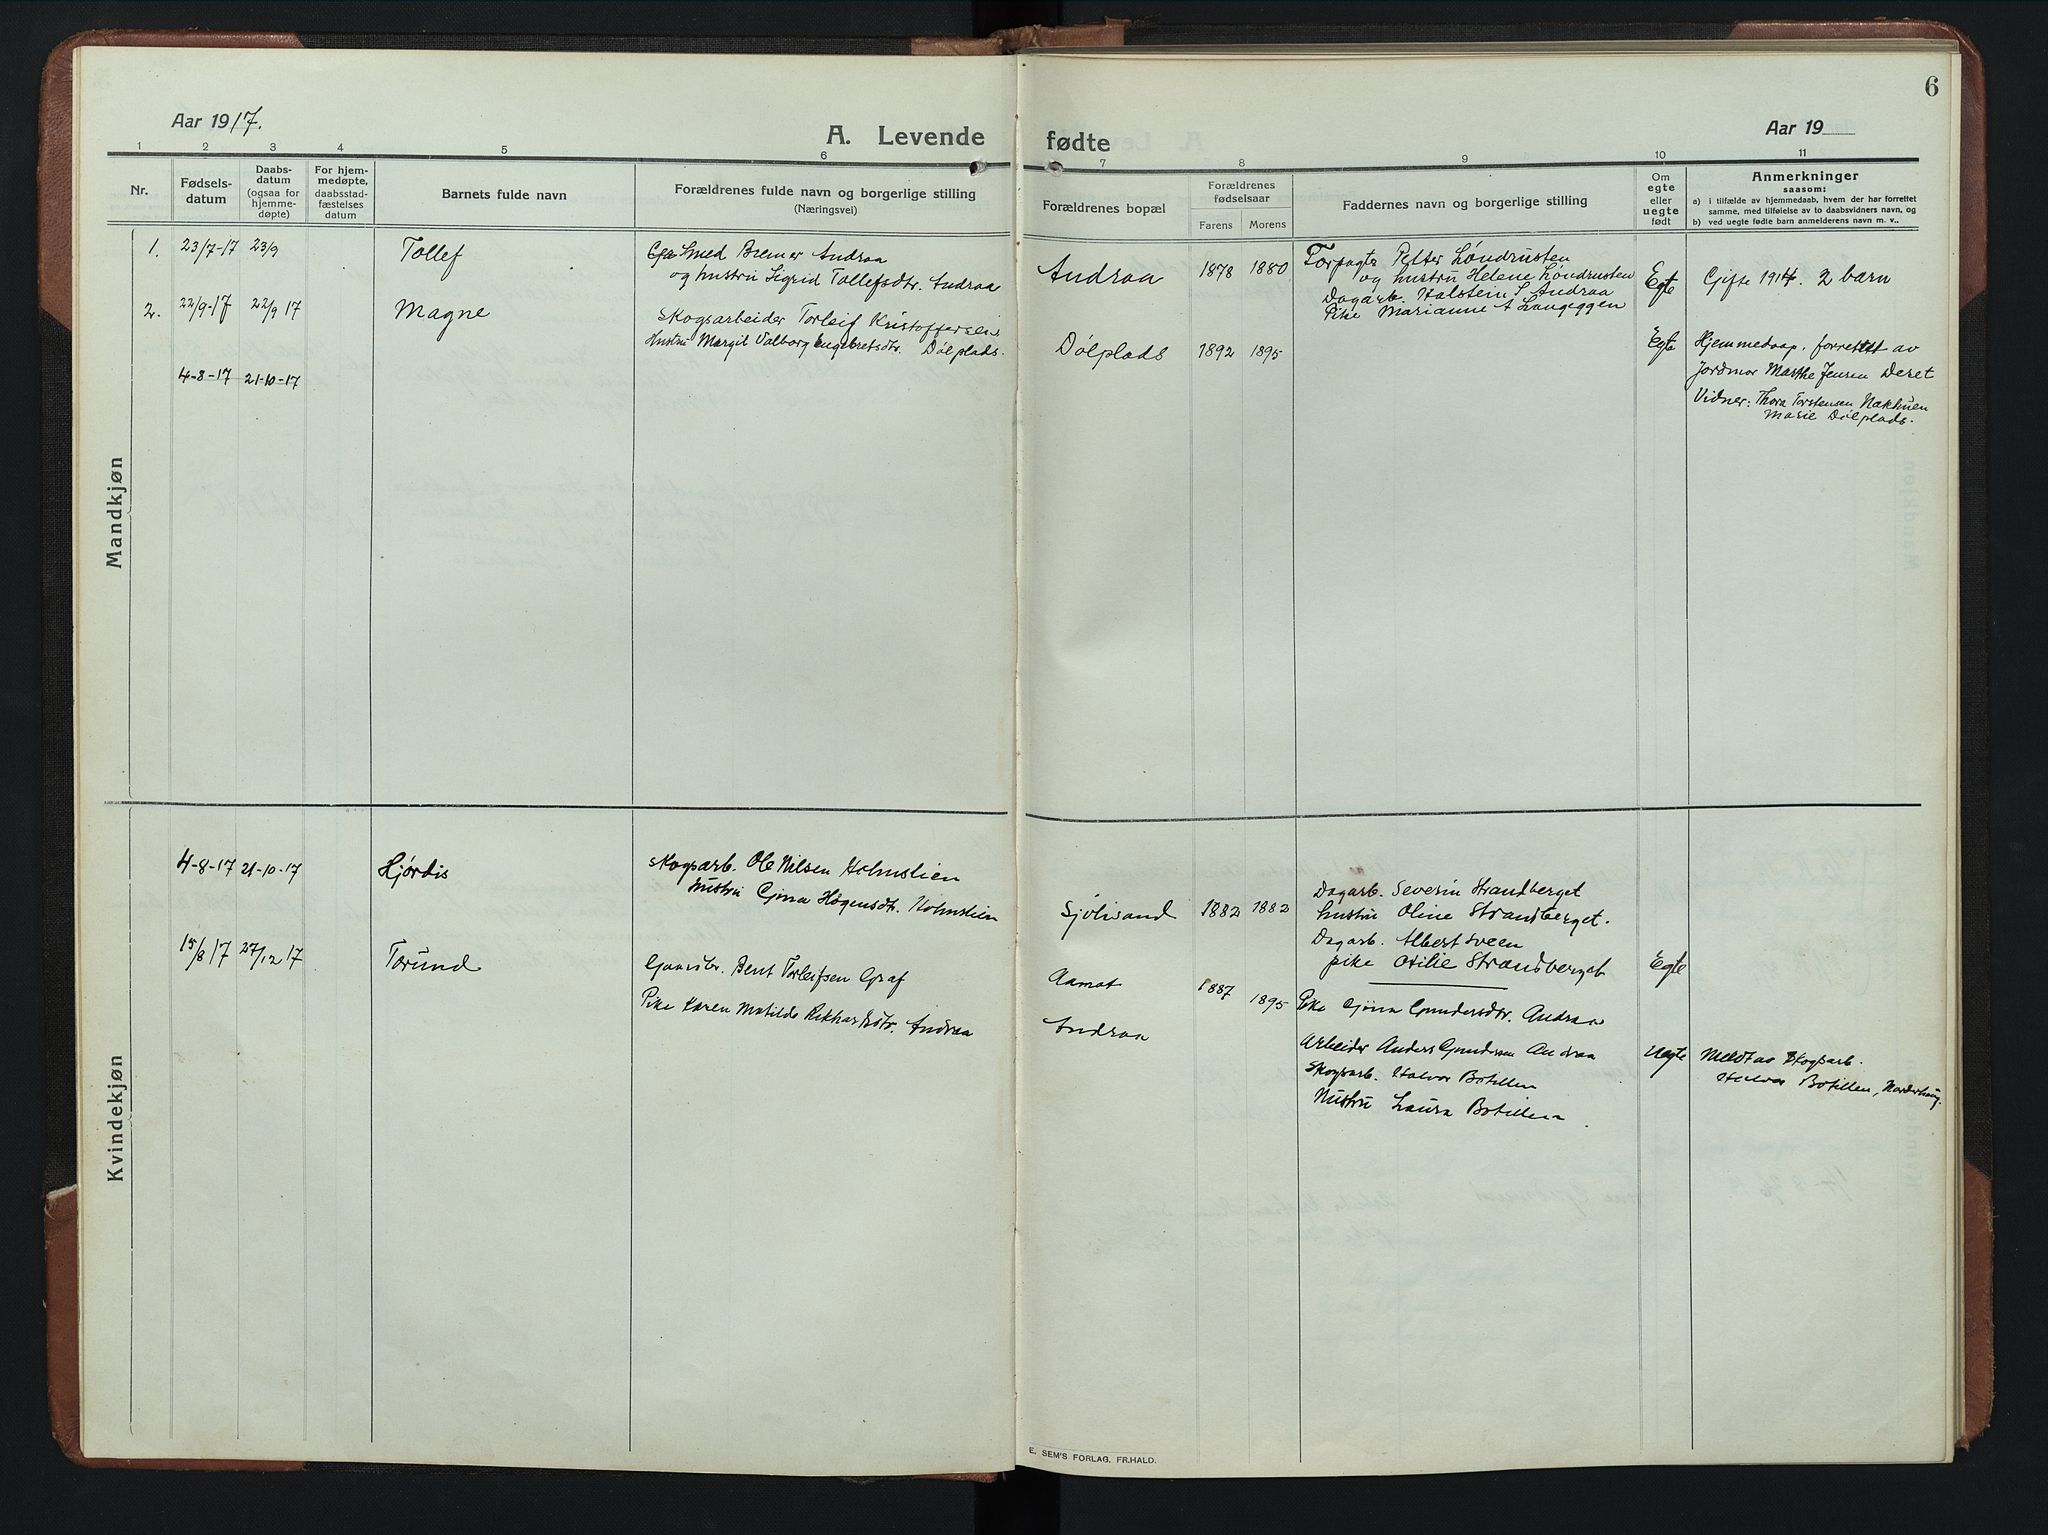 6
Aar 1917.
A. Levende
fødte
Aar 19
1 2 3 4 5 6 7 8 9 10 11
Nr.
Fødsels-
datum
Daabs-
datum
(ogsaa for
hjemme-
døpte)
For hjem-
medøpte,
daabsstad-
fæstelses
datum
Barnets fulde navn
Forældrenes fulde navn og borgerlige stilling
(Næringsvei)
Forældrenes bopæl
Forældrenes
fødselsaar
Farens Morens
Faddernes navn og borgerlige stilling
Om
egte
eller
uegte
født
Anmerkninger
saasom:
a) i tilfælde av hjemmedaab, hvem der har forrettet
samme, med tilføielse av to daabsvidners navn, og
b) ved uegte født barn anmelderens navn m. v..
Mandkjøn
1. 23/7-17 23/9
Tollef
Smed Bremer Andraa
og hustru Sigrid Tollefsdtr. Andraa
Andraa 1878 1880
Forpagter Petter Løndrusten
og hustru Helene Løndrusten
Dagarb. Halstein S Andraa
Pike Marianne A Langeggen
Egte
Gifte 1914. 2 barn
2. 22/9-17 22/9 17
Magne
Skogsarbeider Torleif Kristoffersen
Hustru Margit Valborg Engebretsdtr. Dölplads.
Dölplads 1892 1895
Egte
Hjemmedaap. forrettet av
Jordmor Marthe Jensen Deset
Vidner: Thora Torstensen Nækhuen
Marie Dölplads.
4-8-17 21-10-17
Kvindekjøn
4-8-17 21-10-17
Hjørdis
Skogsarb. Ole Nilsen Holmslien
Hustru Gina Høgensdt. Holmslien
Sjölisand 1882 1882
Dagarb. Severin Strandberget
hustru Oline Strandberget.
Dagarb. Albert Sveen
pike Otilie Strandberget
Egte
15/8 17 27/12 17
Torund
Gaardbr. Bent Torleifsen Graf
Pike Karen Matilde Rikhardsdtr. Andraa
Aamot
Andraa
1887 1895
Eke Gina Gundersdtr. Andraa
Arbeider Anders Gundersen Andraa
Skogsarb. Halvor Botillen
Hustru Laura Botillen
Uegte
Meldt av Skogsarb.
Halvor Botillen, Norderhaug.
E. SEM'S FORLAG. FR.HALD.